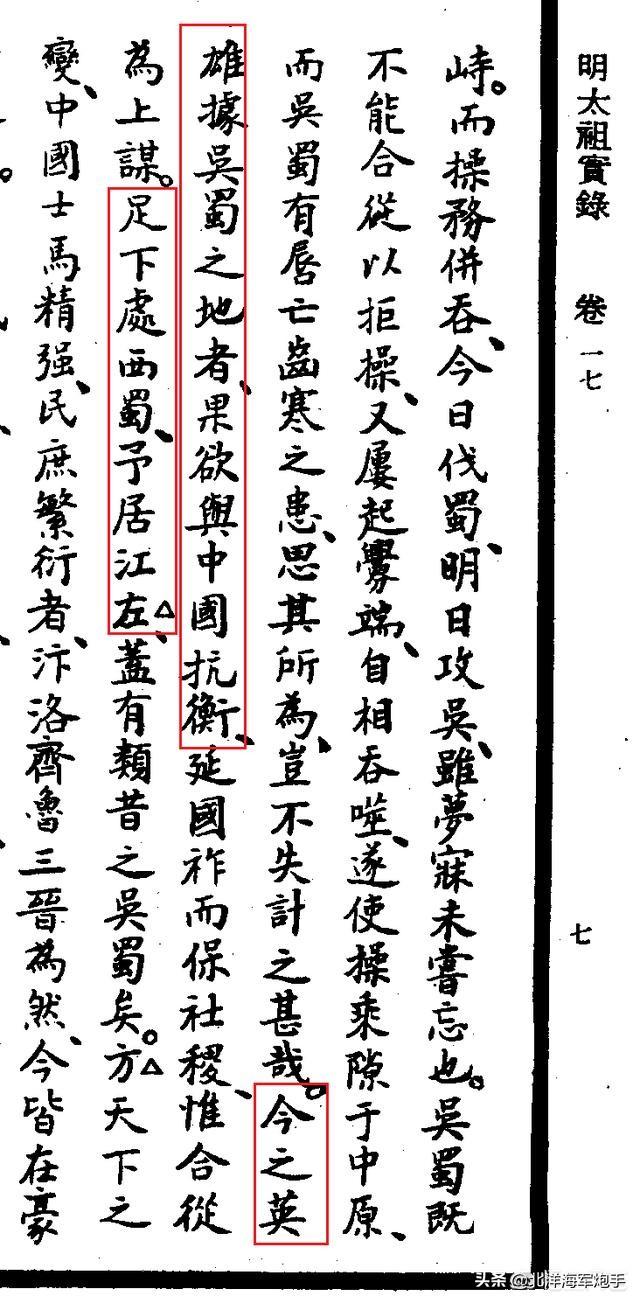 明太祖實錄 卷一七
七
峙。而操務併吞、今日伐蜀、明日攻吳、雖夢寐未嘗忘也。吳蜀既
不能合從以拒操、又屢起釁端、自相吞噬、遂使操乘隙于中原、
而吳蜀有唇亡齒寒之患、思其所為、豈不失計之甚哉。今之英
雄據吳蜀之地者、果欲與中國抗衡、延國祚而保社稷、惟合從
為上謀。足下處西蜀、予居江左、△蓋有類昔之吳蜀矣。△方天下之
變、中國士馬精强、民庶繁衍者、汴洛齊魯三晉為然、今皆在豪
头条 @北洋海军炮手